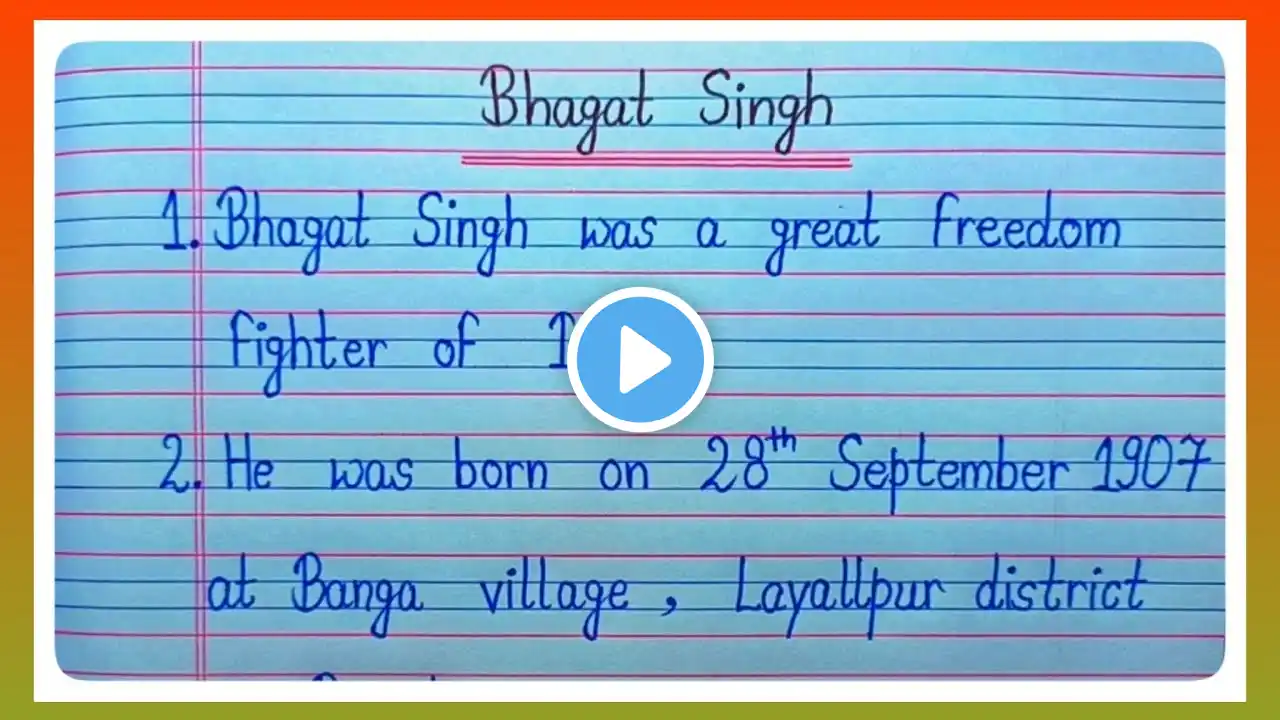 Bhagat Singh
1. Bhagat Singh was a great freedom
fighter of
2. He was born on 28th September 1907
at Banga village, Layallpur district